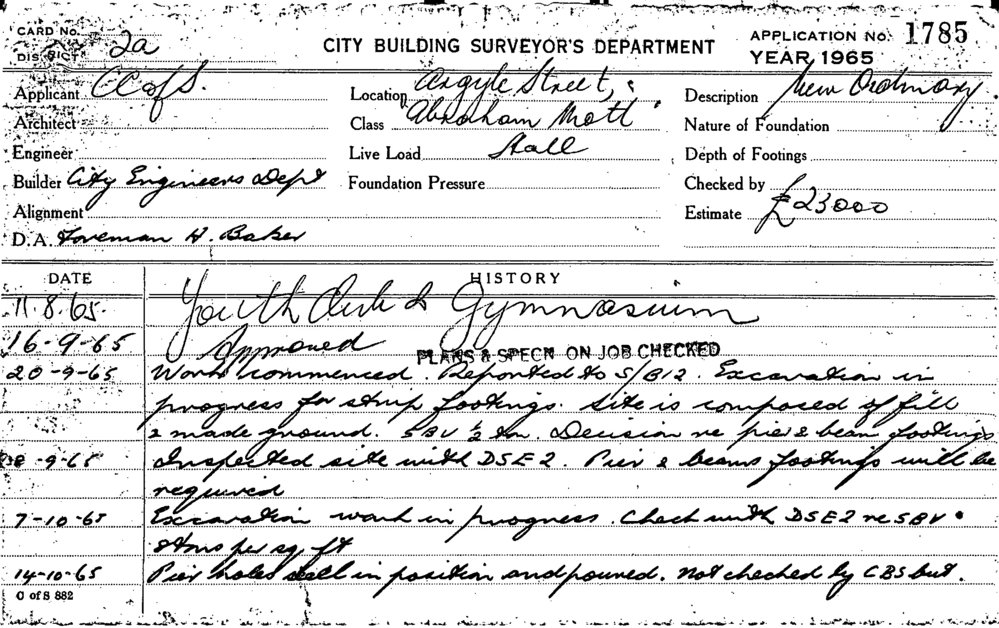 CARD No. 2a
DISTRICT
CITY BUILDING SURVEYOR'S DEPARTMENT
APPLICATION No. 1785
YEAR, 1965
Applicant C of S.
Location Argyle Street,
Description New Ordinary.
Architect
Class "Abraham Mott
Nature of Foundation
Engineer
Live Load Hall
Depth of Footings
Builder City Engineers Dept
Foundation Pressure
Checked by
Alignment
Estimate £23000
D.A. Foreman H. Baker
DATE HISTORY
11.8.65. Youth Club & Gymnasium
16-9-65 Approved
PLANS & SPECN ON JOB CHECKED
20-9-65 Work commenced. Reported to S/B12. Excavation in
progress for strip footings. Site is composed of fill
& made ground. SBV ½ ton. Decision re pier & beam footings
-9-65 Inspected site with DSE2. Pier & beams footings will be
required
7-10-65 Excavation work in progress. Check with DSE2 re SBV
tons per sq. ft
14-10-65 Pier holes in position and poured. Not checked by CBS but.
C of S 882